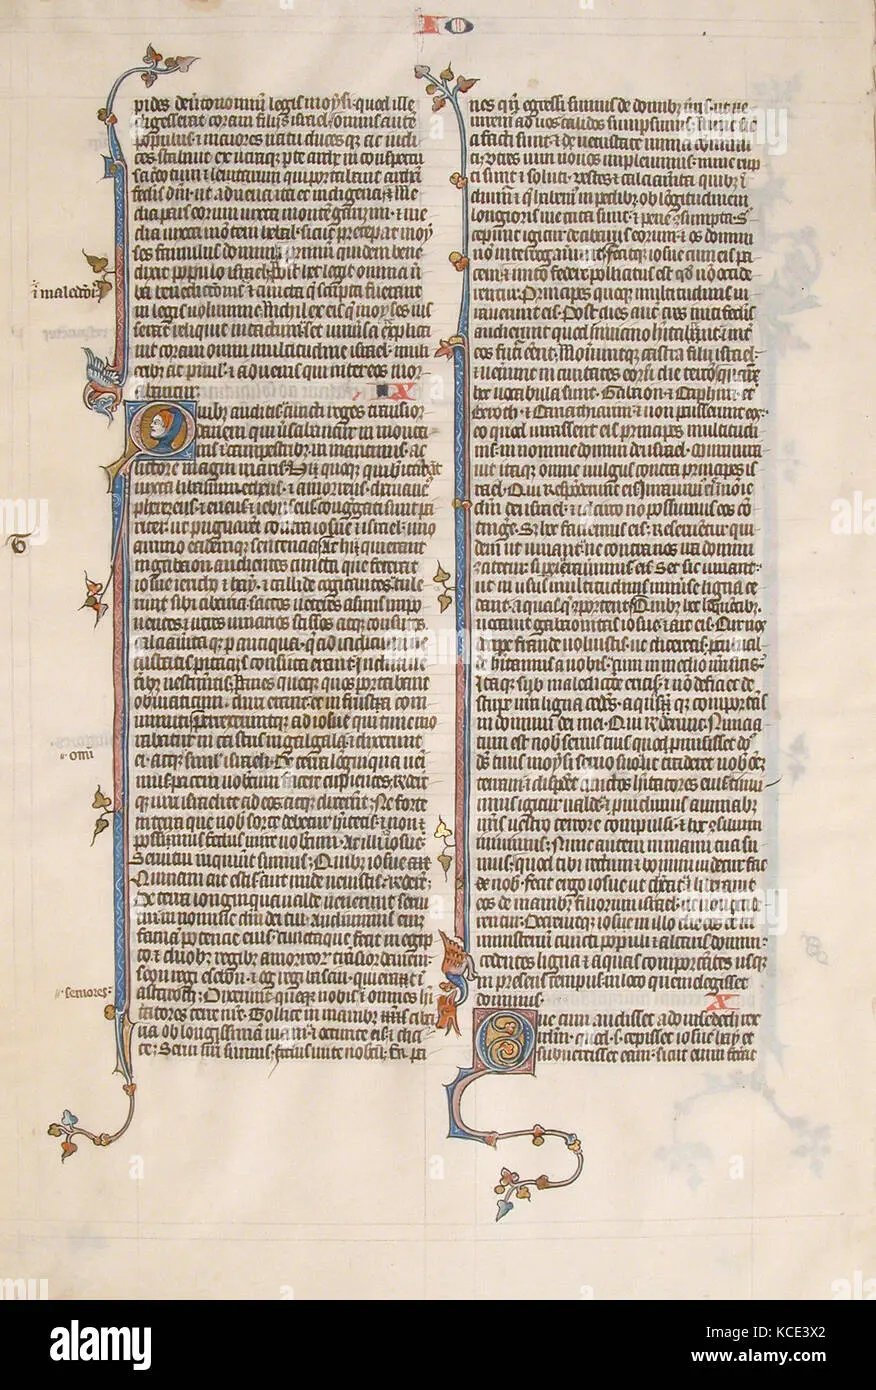 IO
pides deutonomiū legis moysi quod ille
digesserat coram filijs israel. omnis autē
populus et maiores natu duces qz ac iudi
ces stabant ex utraqz pte arche in conspectu
sacerdotum et leuitarum qui portabant archā
federis dnī. ut aduena ita et indigena. Me
dia pars eorum iuxta montē garizim. et me
dia iuxta mōtem hebal. sicut preceperat moy
ses famulus domini. primum quidem bene
dixit populo israel. Post hec legit omnia ū
ba benedictionis et cuncta que scripta fuerant
in legis uolumine. Nichil ex eis que moyses ius
serat reliquit intactum. set uniuersa explica
uit coram omni multitudine israel. muli
eribz ac paruulis. et aduenis qui inter eos mor
abantur.
IX
Quibz auditis cuncti reges transior
danem qui uersabantur in monta
nis et campestribz in maritimis ac
littore magni maris. Hij quoque qui habitabāt
iuxta libanum. etheus. et amorreus. chananeus
pherezeus. et eueus. et iebuseus. congregati sunt pa
riter. ut pugnarent contra iosue et israel. uno
animo eademqz sententia. At hij qui erant
in gabaon. audientes cuncta que fecerat
iosue iericho et hay. et callide cogitantes tule
runt sibi cibaria. saccos ueteres asinis impo
nentes. et utres uinarios scissos atqz consutos.
calciamenta qz pantiqua. que ad indicium ue
tustatis pittaciis consuta erant. Induti ue
teribz uestimentis. Panes quoqz quos portabant
ob uiaticum. duri erant et in frusta com
minuti. Perrexeruntqz ad iosue qui tunc mo
rabatur in castris in galgala. et dixerunt
ei. atqz simul israeli. De terra longinqua ueni
mus pacem uobiscum facere cupientes. Rūder
qz uiri israel ad eos atqz dixerunt. Ne forte
in terra que nob sorte debetur habitetis. et non
possimus fedus inire uobiscum. At illi ad iosue.
Serui tui inquiunt sumus. Quibz iosue ait
Quinam ait estis. aut unde uenistis. Rūderūt.
De terra longinqua ualde uenerunt serui
tui in nomine dnī dei tui. Audiuimus enim
famam potencie eius. cuncta que fecit in egip
to. et duobz regibz amorreorum trans iordanem.
seon regi esebon. et og regi basan. qui erant ī
astaroth. Dixeruntqz nobis seniores et omnes hī
tatores terre nr̄e. Tollite in manibz uris ciba
ria ob longissimam uiam. et occurrite eis. et dici
te. Serui ur̄i sumus. fedus inite nobiscum. En pa
ī maledcōis
omī
seniores
nes qn egressi sumus de domibz nr̄is. ut ue
niremus ad uos calidos sumpsimus. nunc sic
ci facti sunt. et de uetustate nimia comminu
ti. utres uini nouos impleuimus. nunc rup
ti sunt et soluti. uestes et calciamenta quibz ī
duimur. et que habemus in pedibz. ob longitudinem
longioris uie trita sunt. et pene consumpta. Su
sceperunt igitur de cibariis eorum. et os domini
non interrogauerunt. Fecitqz iosue cum eis pa
cem. et inito federe pollicitus est quod non occide
rentur. Principes quoqz multitudinis iu
rauerunt eis. Post dies autem tres initi federis
audierunt quod in uicino habitarent. et inter
eos futuri essent. Moueruntqz castra filii israel.
et uenerunt in ciuitates eorum die tercio. quarum
hec uocabula sunt. Gabaon. et Caphira. et
Beroth. et Cariathiarim. et non percusserunt eos.
eo quod iurassent eis principes multitudi
nis in nomine domini dei israel. Murmura
uit itaqz omne uulgus contra principes is
rael. Qui responderunt eis. Iurauimus eis in nomine
dnī dei israel. et idcirco non possumus eos con
tingere. Set hec faciemus eis. Reseruentur qui
dem ut uiuant. ne contra nos ira domini
concitetur. si peierauerimus eis. Set sic uiuant.
ut in usus multitudinis uniuerse ligna ce
dant. aquasqz comportent. Quibz hec loquentibz.
uocauit gabaonitas iosue et ait eis. Cur nos
decipe fraude uoluistis. ut diceretis. procul ual
de habitamus a nobis. cum in medio nr̄i sitis?
Itaqz sub maledictione eritis. et non deficiet de
stirpe ura ligna cedens. aquasqz comportans
in domum dei mei. Qui Rūderunt. Nuncia
tum est nob seruis tuis quod promisisset dn̄s
ds̄ tuus moysi seruo suo. ut traderet uobis omnem
terram. et disperderet cunctos habitatores eius. timui
mus igitur ualde. et prouidimus animabz
nr̄is uestro terrore compulsi. et hoc consilium
inimus. Nunc autem in manu tua su
mus. quod tibi rectum et bonum uidetur fac
de nob. Fecit ergo iosue ut dixerat. et liberauit
eos de manibz filiorum israel. ut non occide
rentur. Decreuitqz iosue in illo die eos esse in
ministerium cuncti populi. et altaris domini.
cedentes ligna. et aquas comportantes usqz
in presens tempus. in loco quem elegisset
dominus.
X
Que cum audisset adonisedech rex
irlm̄. quod scilicet cepisset iosue hay et
subuertisset eam. sicut enim fecerat